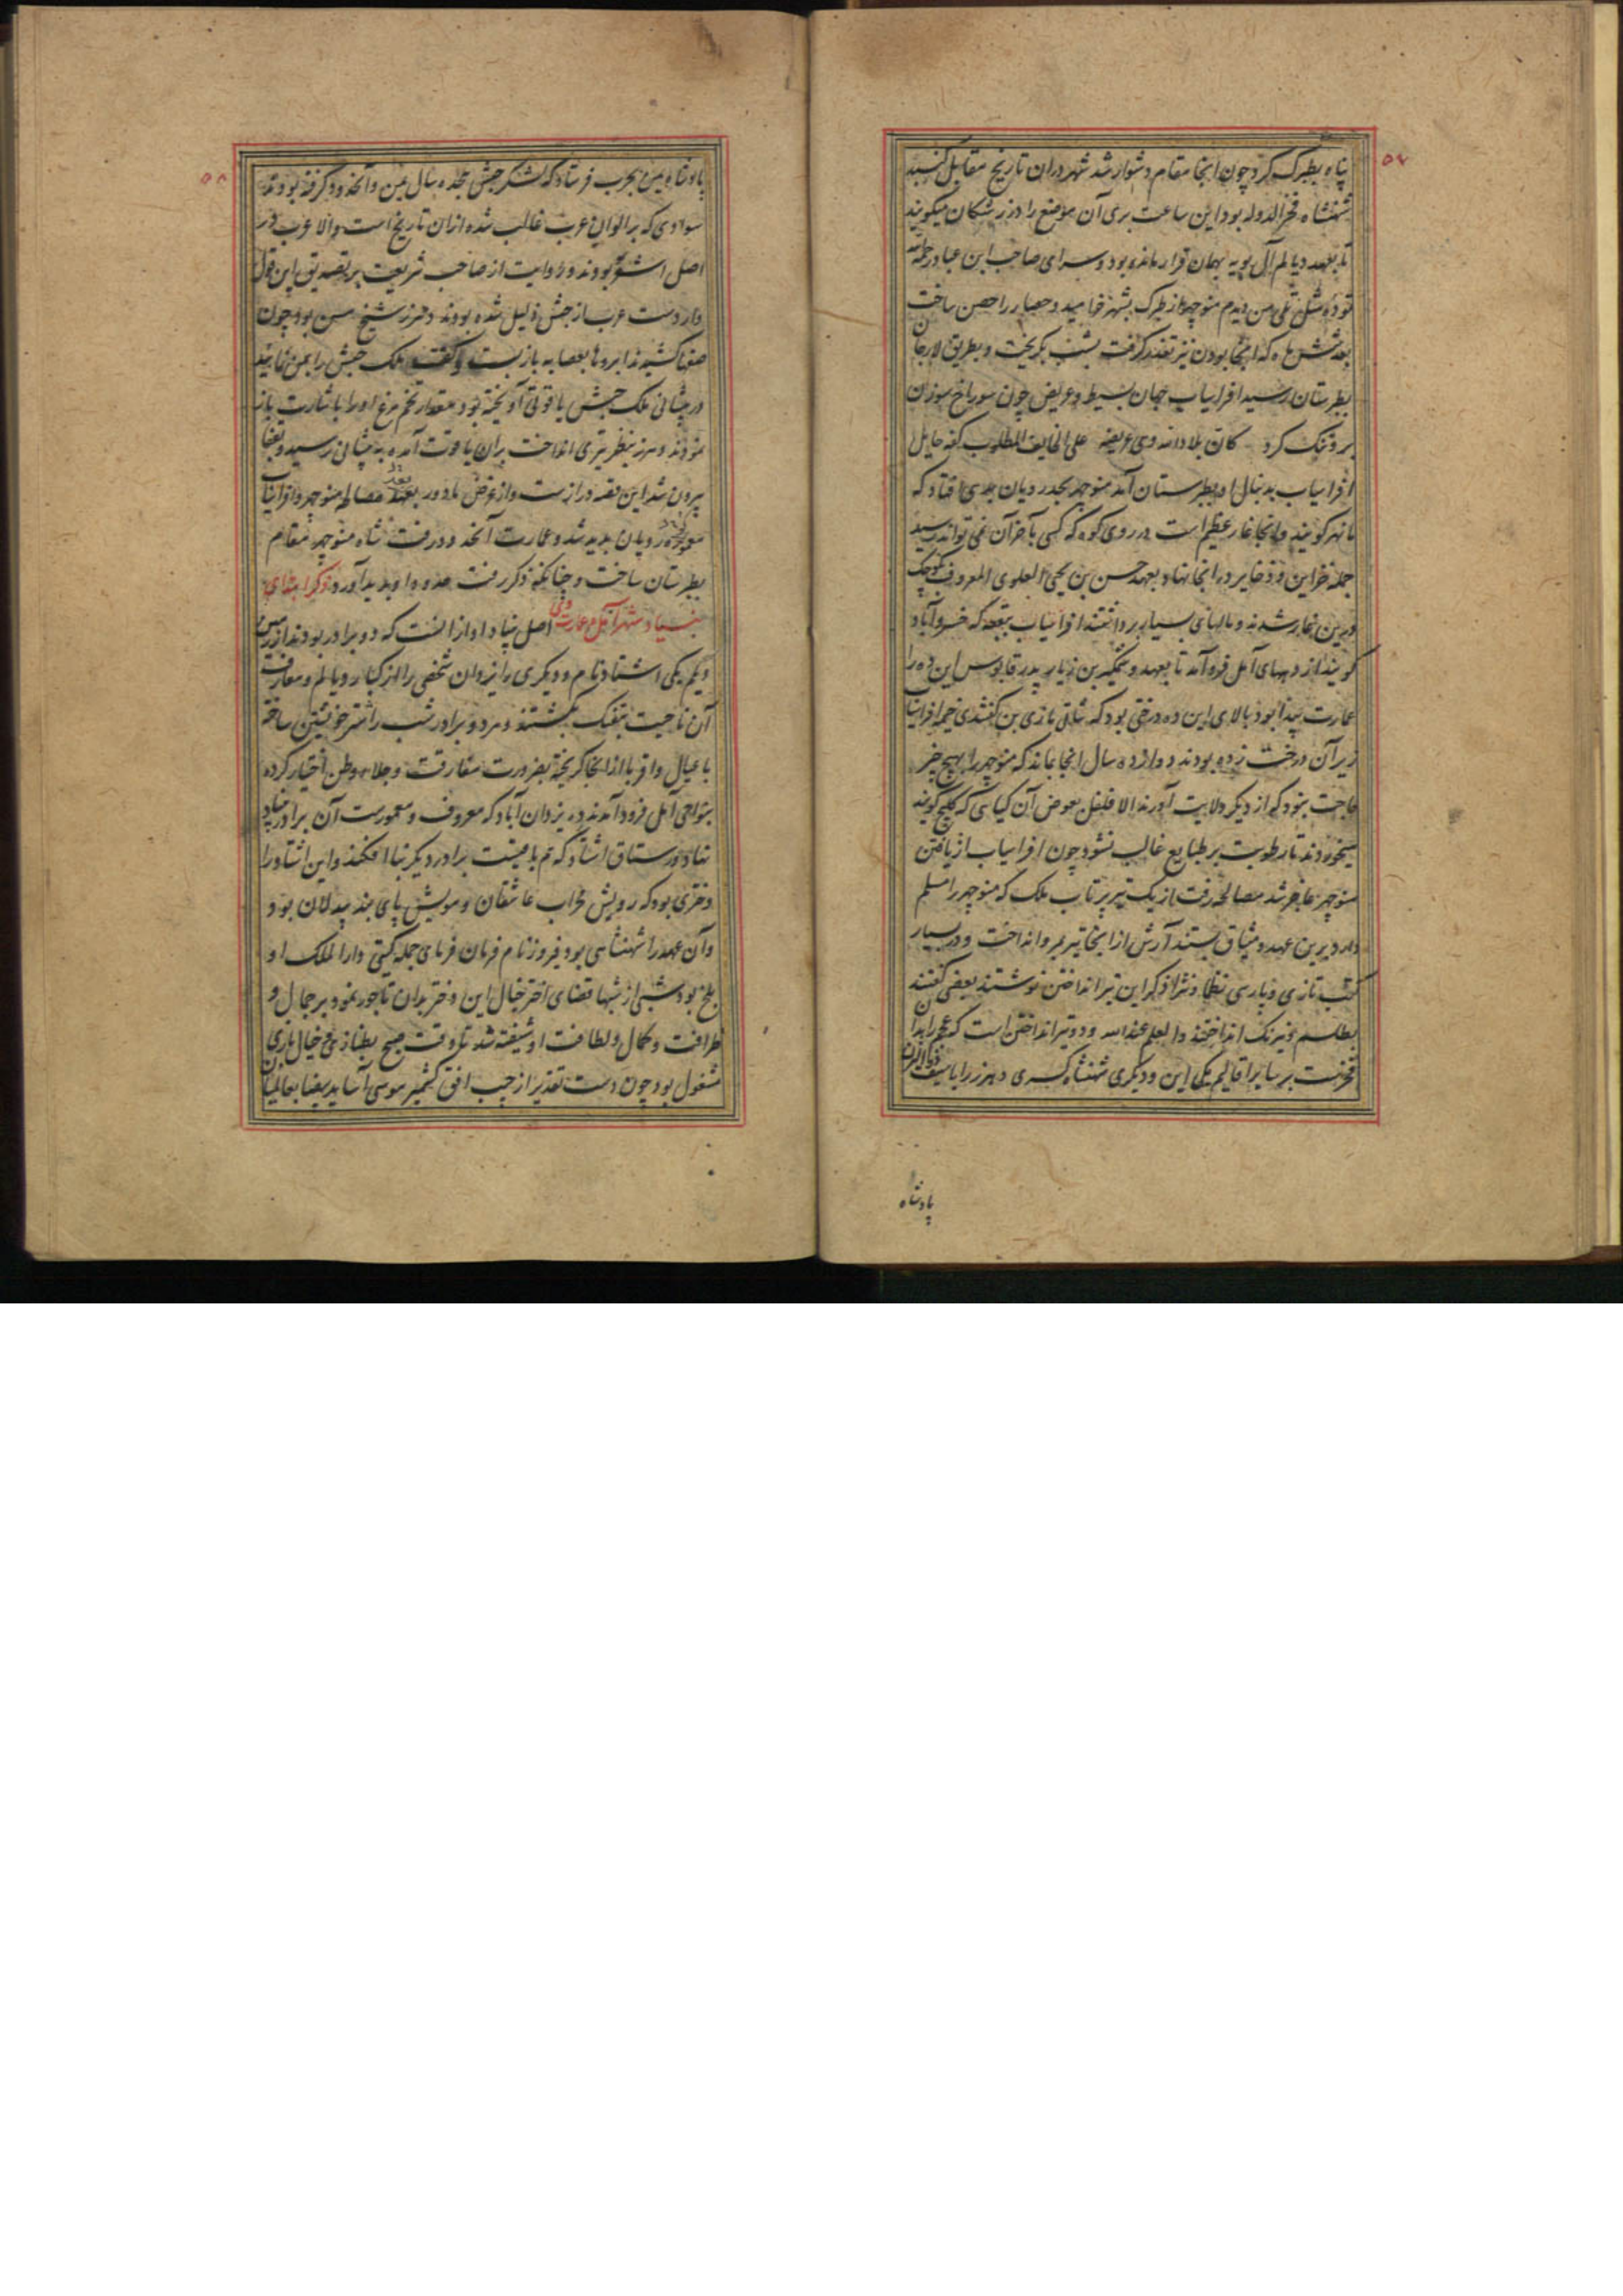 ۵۷
پناه بطبرک کرد چون انجا مقام دشوار شد شهر دران تاریخ مقابل کنبد
شهنشاه فخرالدوله بود این ساعت بری آن موضع را دز رشکان میکویند
تا بعهد دیالم آل بویه بهمان قرار مانده بود و سرای صاحب ابن عباد رحمه الله
توده مثل تلی من دیدم منوچهر از طبرک بشهر خرامید و حصار را حصن ساخت
بعد شش ماه که انجا بودن نیز تعذر کرفت بشب بکریخت و بطریق لارجان
بطبرستان رسید افراسیاب جهان بسیط و عریض چون سوراخ سوزن
برو تنک کرد کان بلاد الله وهی عریضه علی الخایف المطلوب کفه حابل
افراسیاب بدنبال او بطبرستان آمد منوچهر بحد رویان بدیهی افتاد که
مانهیر کویند وانجا غار عظیم است در روی کوه که کسی بآخر آن نمی تواند رسید
جمله خزاین و ذخایر در انجا نهاد و بعهد حسن بن یحیی العلوی المعروف بکوچک
درین غار شدند و مالهای بسیار برداشتند افراسیاب ببقعه که خسرو آباد
کویند از دیهای آمل فروآمد تا بعهد وشمکیر بن زیار پدر قابوس این ده را
عمارت پیدا بود بالای این ده درختی بود که شاقی مازی بن کفتندی خیمه افراسیاب
زیر آن درخت زده بودند دوازده سال انجا بماند که منوچهر را بهیچ چیز
حاجت نبود که از دیکر ولایت آورند الا فلفل بعوض آن کیاهی که کلیج کویند
میخوردند تا رطوبت بر طبایع غالب نشود چون افراسیاب از یافتن
منوچهر عاجز شد مصالحه رفت از یک تیر پرتاب ملک که منوچهر را مسلم
دارد برین عهد و میثاق بستند آرش از انجا تیر بمرو انداخت و در بسیار
کتب تازی و پارسی نظما و نثرا ذکر این تیر انداختن نوشتند بعضی کفتند
بطلسم و نیرنک انداختند والعلم عند الله و دو تیر انداختن است که عجم را بدان
فخرست بر سایر اقالیم یکی این و دیکری شهنشاه کسری وهرز را با سیف ذی الیزن
پادشاه
۵۸
پادشاه یمن بحرب فرستاد که لشکر حبش هجده سال یمن و آنحدود کرفته بودند
سوادی که بر الوان عرب غالب شده ازان تاریخ است والا عرب در
اصل اشقر بودند و روایت از صاحب شریعت بر تصدیق این قول
وارد است عرب از حبش ذلیل شده بودند وهرز شیخ مسن بود چون
صفها کشیدند ابروها بعصابه بازبست و کفت ملک حبش را بمن نمایید
در پیشانی ملک حبش یاقوتی آویخته بود بمقدار تخم مرغ او را باشارت باز
نمودند وهرز بنظر تیری انداخت بران یاقوت آمده به پیشانی رسید و بقفا
بیرون شد این قصه درازست و از غرض ما دور بعد مصالحه منوچهر و افراسیاب
معموره رویان پدید شد و عمارت آنحدود رفت شاه منوچهر مقام
بطبرستان ساخت و چنانکه ذکر رفت حدود او پدید آورد ذکر ابتدای
بنیاد شهر آمل و عمارت وی اصل بنیاد او ازانست که دو برادر بودند از زمین
دیلم یکی اشتاد نام و دیکری را یزدان شخصی را از کبار دیالم و معارف
آن ناحیت بفتک بکشتند و هر دو برادر شب را ستر خویشتن ساخته
با عیال و اقربا ازانجا کریخته بضرورت مفارقت و جلاء وطن اختیار کرده
بنواحی آمل فرود آمدند ده یزدان آباد که معروف و معمورست آن برادر بنیاد
نهاد و رستاق اشتاد که هم باقیست برادر دیکر بنا افکند و این اشتاد را
دختری بود که رویش محراب عاشقان و مویش پای بند بیدلان بود
و آن عهد را شهنشاهی بود فیروز نام فرمان فرمای جمله کیتی دارالملک او
بلخ بود شبی از شبها قضای اختر خیال این دختر بدان تاجور نمود بر جمال و
ظرافت و کمال و لطافت او شیفته شد تا وقت صبح بطناز خیال بازی
مشغول بود چون دست تقدیر از جیب افق کشمیر موسی آسا ید بیضا بعالمیان